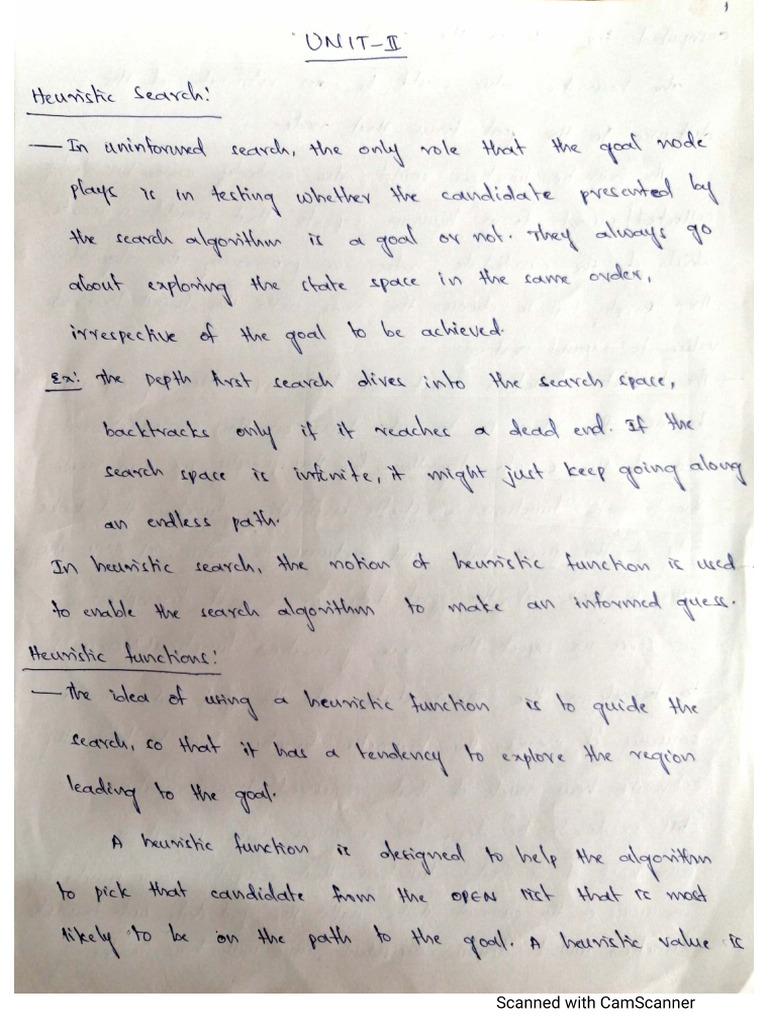 1
UNIT-II
Heuristic Search:
— In uninformed search, the only role that the goal node
plays is in testing whether the candidate presented by
the search algorithm is a goal or not. They always go
about exploring the state space in the same order,
irrespective of the goal to be achieved.
Ex: The Depth first search dives into the search space,
backtracks only if it reaches a dead end. If the
search space is infinite, it might just keep going along
an endless path.
In heuristic search, the notion of heuristic function is used
to enable the search algorithm to make an informed guess.
Heuristic functions:
— The idea of using a heuristic function is to guide the
search, so that it has a tendency to explore the region
leading to the goal.
A heuristic function is designed to help the algorithm
to pick that candidate from the OPEN list that is most
likely to be on the path to the goal. A heuristic value is
Scanned with CamScanner